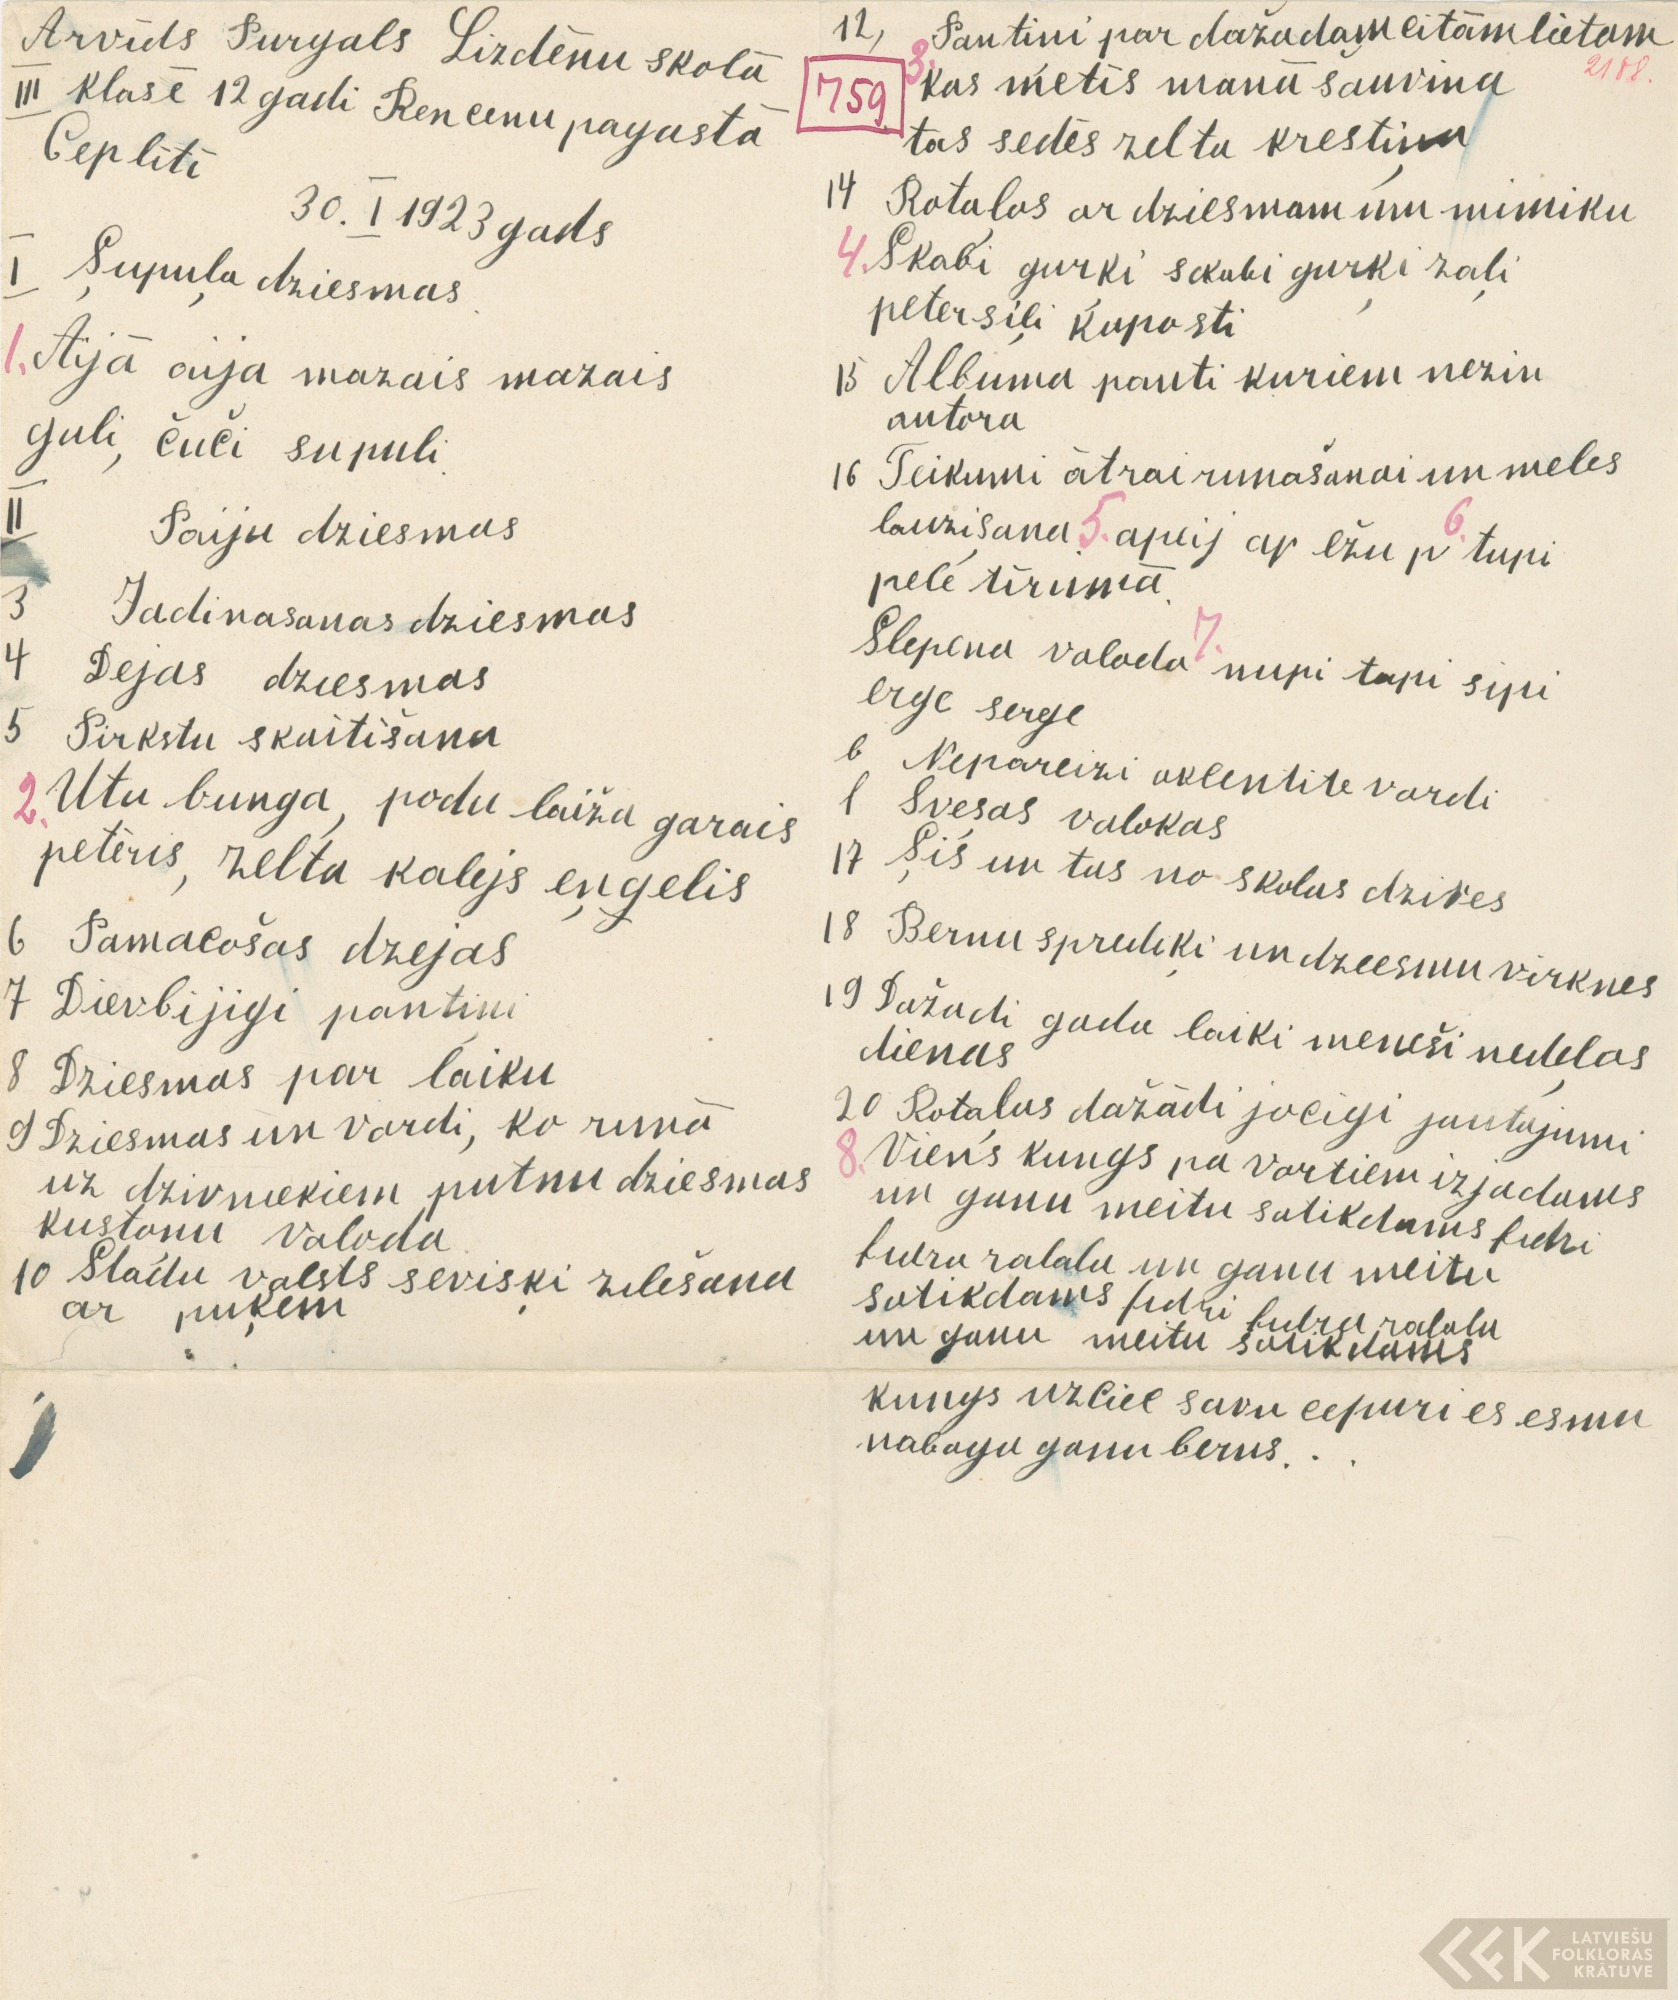 Arvīds Purgals Lizdēnu skolā
III klasē 12 gadi Rencenu pagastā
Ceplīti
30. I 1923 gads
I Şupuļa dziesmas
1. Aijā aija mazais mazais
guli, čuči supuli.
II Paiju dziesmas
3 Jadinasanas dziesmas
4 Dejas dziesmas
5 Pirkstu skaitišana
2. Utu bunga, podu laiža garais
petēris, zelta kalejs eņgelis
6 Pamacošas dzejas
7 Dievbijigi pantiņi
8 Dziesmas par laiku
9 Dziesmas un vardi, ko runā
uz dzivniekiem putnu dziesmas
kustonu valoda
10 Stadu valsts seviski zilešana
ar puķem
12, Pantini par dažadam citām lietam
759 2188.
3. kas metīs manā šauvina
tas sedēs zelta krestiņa
14 Rotaļas ar dziesmam un mimiku
4. Skabi gurķi skabi gurķi zaļi
petersiļi kaposti
15 Albuma panti kuriem nezin
autora
16 Teikumi ātrai runašanai un meles
lauzišana 5. apeij ap ežu p 6. tupi
pele tīrumā.
Slepena valoda 7. nupi tapi sipi
erge serge
b Nepareizi akcentite vardi
Svešas valokas
17 Şis un tas no skolas dzives
18 Bernu sprediķi un dzeesmu virknes
19 Dažadi gada laiki meneši nedeļas
dienas
20 Rotaļas dažādi jocigi jautajumi
8. Viens kungs pa vartiem izjadams
un ganu meitu satikdams fudri
fudra ralala un ganu meitu
satikdams fudri fudra ralala
un ganu meitu satikdams
kungs uzliec savu cepuri es esmu
nabaga ganu berns. . .
LATVIEŠU
FOLKLORAS
KRĀTUVE